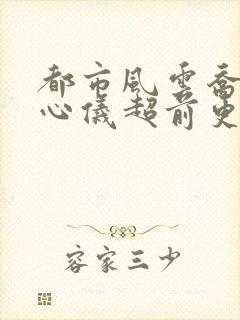 都市風雲喬
心儀超前更
容家三少